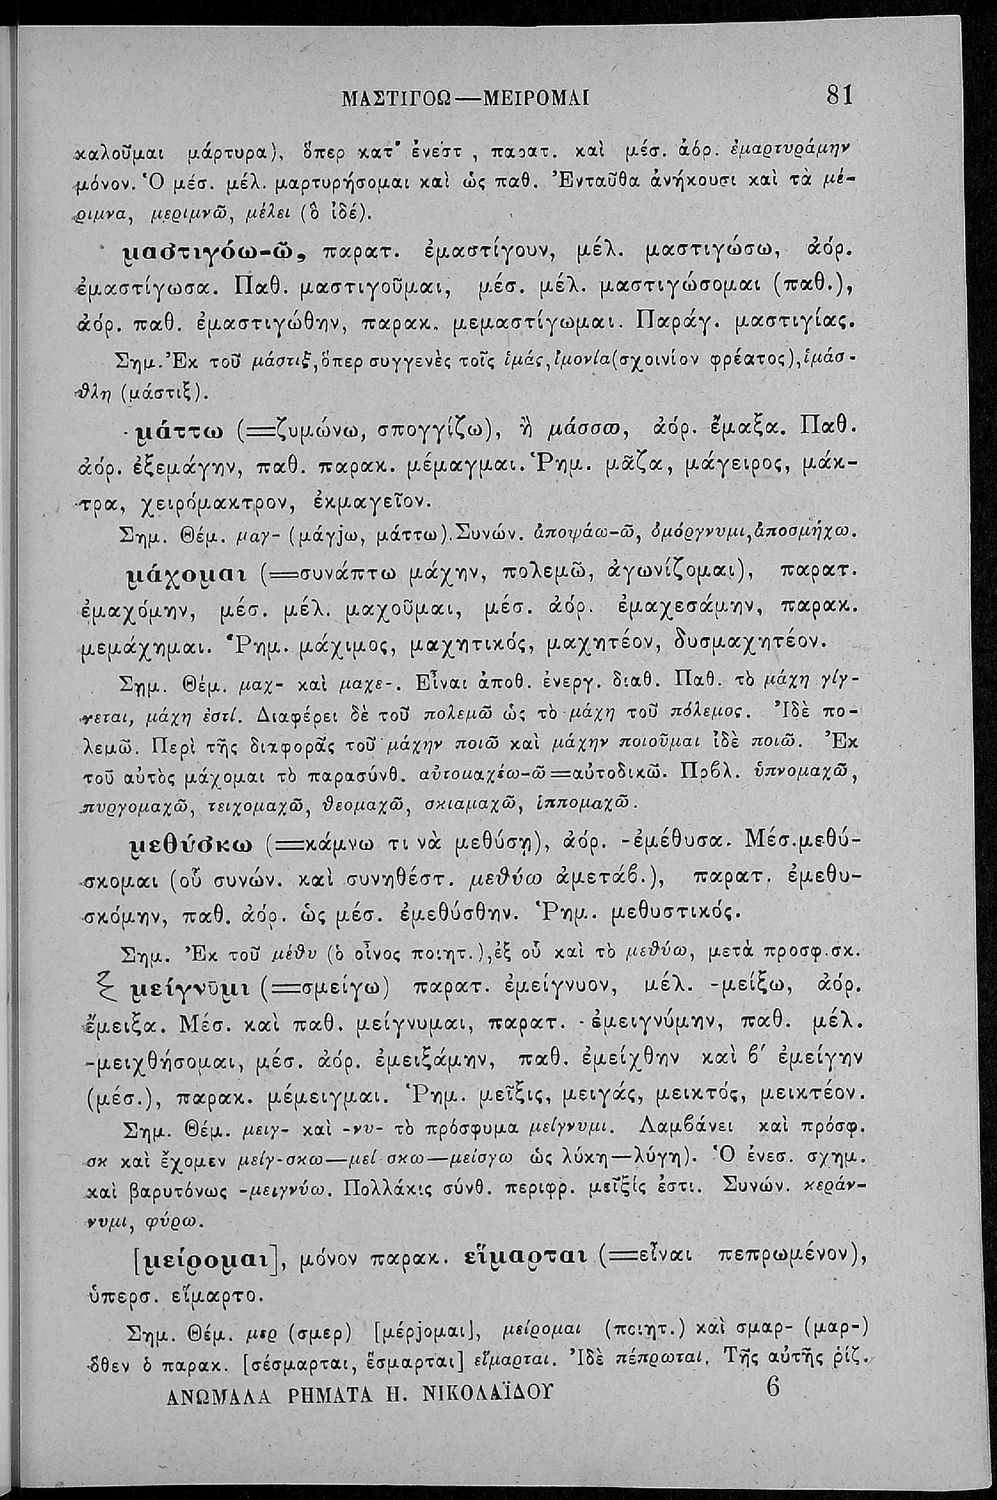 ΜΑΣΤΙΓΟΩ—ΜΕΙΡΟΜΑΙ 81
καλοῦμαι μάρτυρα), ὅπερ κατ᾿ ἐνεστ , παρατ. καὶ μέσ. ἀόρ. ἐμαρτυράμην
μόνον. Ὁ μέσ. μέλ. μαρτυρήσομαι καὶ ὡς παθ. Ἐνταῦθα ἀνήκουσι καὶ τὰ μέ-
ριμνα, μεριμνῶ, μέλει (ὃ ἰδέ).
μαστιγόω-ῶ, παρατ. ἐμαστίγουν, μέλ. μαστιγώσω, ἀόρ.
ἐμαστίγωσα. Παθ. μαστιγοῦμαι, μέσ. μέλ. μαστιγώσομαι (παθ.),
ἀόρ. παθ. ἐμαστιγώθην, παρακ. μεμαστίγωμαι. Παράγ. μαστιγίας.
Σημ. Ἐκ τοῦ μάστιξ, ὅπερ συγγενὲς τοῖς ἱμάς, ἱμονία (σχοινίον φρέατος), ἱμάσ-
θλη (μάστιξ).
μάττω (=ζυμώνω, σπογγίζω), ἢ μάσσω, ἀόρ. ἔμαξα. Παθ.
ἀόρ. ἐξεμάγην, παθ. παρακ. μέμαγμαι. Ῥημ. μᾶζα, μάγειρος, μάκ-
τρα, χειρόμακτρον, ἐκμαγεῖον.
Σημ. Θέμ. μαγ- (μάγjω, μάττω). Συνών. ἀποψάω-ῶ, ὀμόργνυμι, ἀποσμήχω.
μάχομαι (=συνάπτω μάχην, πολεμῶ, ἀγωνίζομαι), παρατ.
ἐμαχόμην, μέσ. μέλ. μαχοῦμαι, μέσ. ἀόρ. ἐμαχεσάμην, παρακ.
μεμάχημαι. Ῥημ. μάχιμος, μαχητικός, μαχητέον, δυσμαχητέον.
Σημ. Θέμ. μαχ- καὶ μαχε-. Εἶναι ἀποθ. ἐνεργ. διαθ. Παθ. τὸ μάχη γίγ-
νεται, μάχη ἐστί. Διαφέρει δὲ τοῦ πολεμῶ ὡς τὸ μάχη τοῦ πόλεμος. Ἰδὲ πο-
λεμῶ. Περὶ τῆς διαφορᾶς τοῦ μάχην ποιῶ καὶ μάχην ποιοῦμαι ἰδὲ ποιῶ. Ἐκ
τοῦ αὐτὸς μάχομαι τὸ παρασύνθ. αὐτομαχέω-ῶ=αὐτοδικῶ. Πρβλ. ὑπνομαχῶ,
πυργομαχῶ, τειχομαχῶ, θεομαχῶ, σκιαμαχῶ, ἱππομαχῶ.
μεθύσκω (=κάμνω τι νὰ μεθύσῃ), ἀόρ. -ἐμέθυσα. Μέσ. μεθύ-
σκομαι (οὗ συνών. καὶ συνηθέστ. μεθύω ἀμετάβ.), παρατ. ἐμεθυ-
σκόμην, παθ. ἀόρ. ὡς μέσ. ἐμεθύσθην. Ῥημ. μεθυστικός.
Σημ. Ἐκ τοῦ μέθυ (ὁ οἶνος ποιητ.), ἐξ οὗ καὶ τὸ μεθύω, μετὰ προσφ. σκ.
ξ μείγνῡμι (=σμείγω) παρατ. ἐμείγνυον, μέλ. -μείξω, ἀόρ.
ἔμειξα. Μέσ. καὶ παθ. μείγνυμαι, παρατ. -ἐμειγνύμην, παθ. μέλ.
-μειχθήσομαι, μέσ. ἀόρ. ἐμειξάμην, παθ. ἐμείχθην καὶ β΄ ἐμείγην
(μέσ.), παρακ. μέμειγμαι. Ῥημ. μεῖξις, μειγάς, μεικτός, μεικτέον.
Σημ. Θέμ. μειγ- καὶ -νυ- τὸ πρόσφυμα μείγνυμι. Λαμβάνει καὶ πρόσφ.
σκ καὶ ἔχομεν μείγ-σκω—μεί σκω—μείσγω ὡς λύκη—λύγη). Ὁ ἐνεσ. σχημ.
καὶ βαρυτόνως -μειγνύω. Πολλάκις σύνθ. περιφρ. μεῖξίς ἐστι. Συνών. κεράν-
νυμι, φύρω.
[μείρομαι], μόνον παρακ. εἵμαρται (=εἶναι πεπρωμένον),
ὑπερσ. εἵμαρτο.
Σημ. Θέμ. μερ (σμερ) [μέρjομαι], μείρομαι (ποιητ.) καὶ σμαρ- (μαρ-)
ὅθεν ὁ παρακ. [σέσμαρται, ἕσμαρται] εἵμαρται. Ἰδὲ πέπρωται. Τῆς αὐτῆς ῥίζ.
ΑΝΩΜΑΛΑ ΡΗΜΑΤΑ Η. ΝΙΚΟΛΑΪΔΟΥ 6